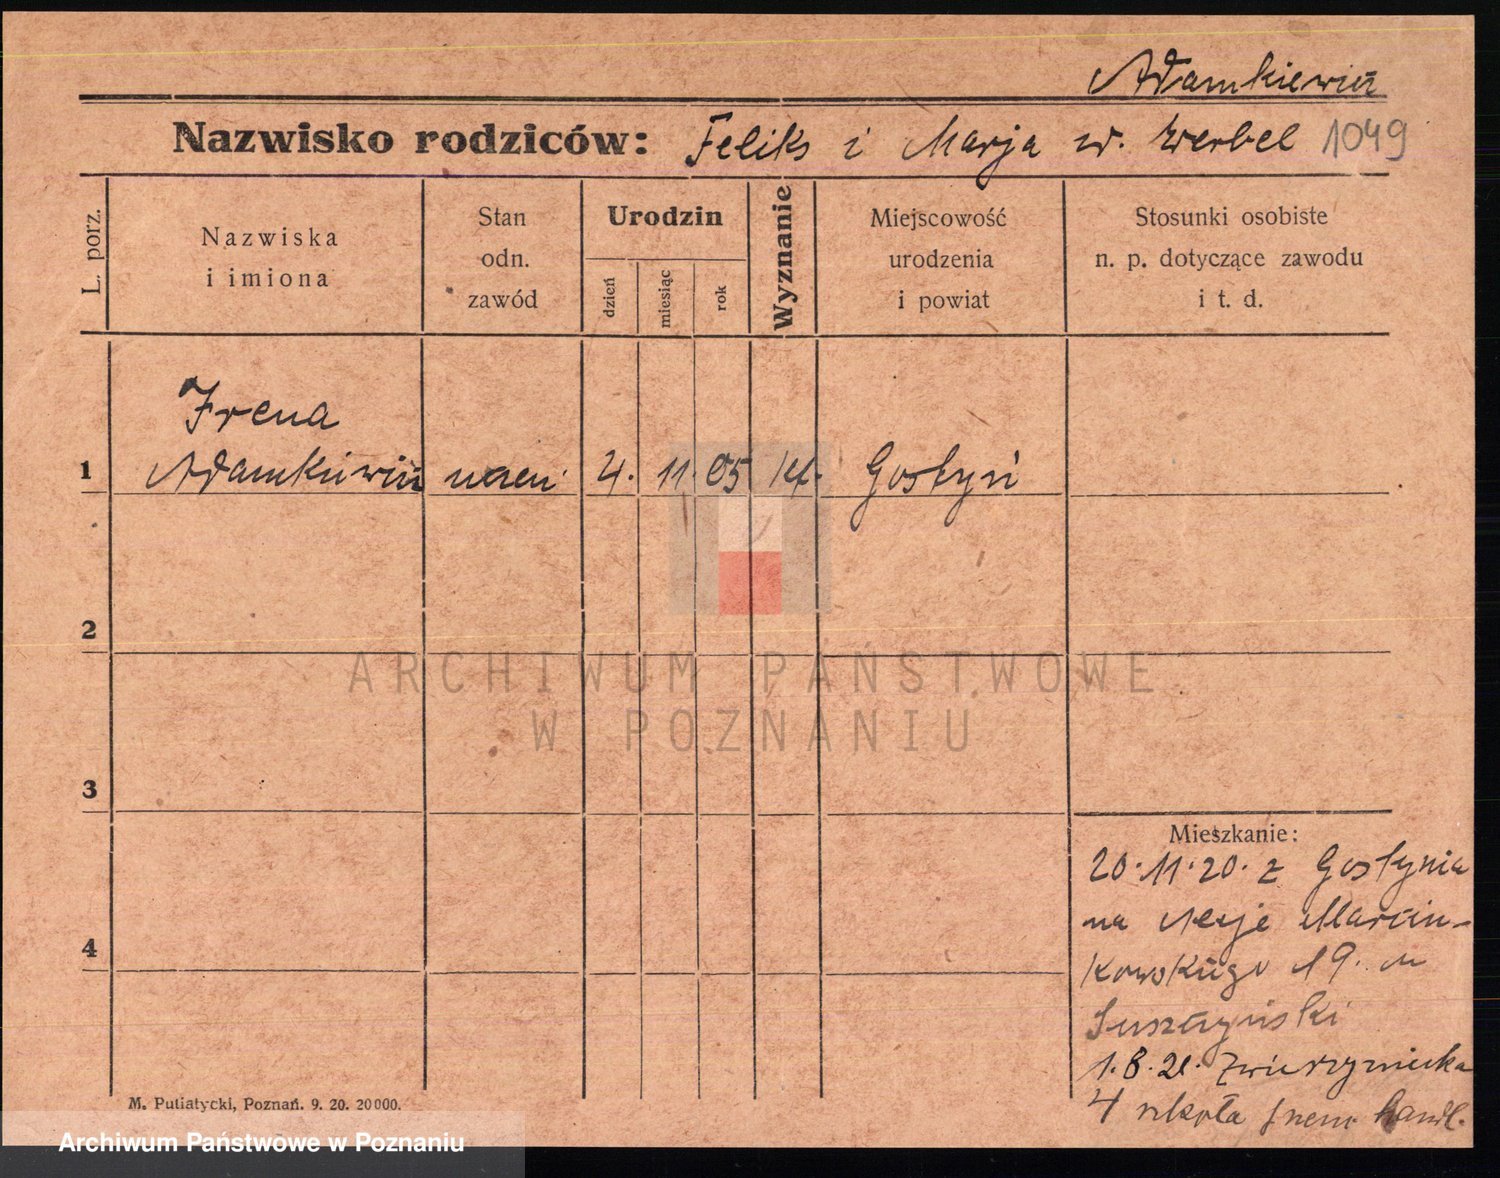 Adamkiewicz
Nazwisko rodziców: Feliks i Marja w. Werbel 1049
L. porz.
Nazwiska
i imiona
Stan
odn.
zawód
Urodzin
dzień
miesiąc
rok
Wyznanie
Miejscowość
urodzenia
i powiat
Stosunki osobiste
n. p. dotyczące zawodu
i t. d.
Irena
1 Adamkiewicz uczen. 4. 11. 05 kt. Gostyń
2
3
4
Mieszkanie:
20.11.20. z Gostynia
na Aleje Marcin-
kowskiego 19. u
1.8.21. Zwierzyniecka
4 szkoła handl.
M. Putiatycki, Poznań. 9. 20. 20000.
ARCHIWUM PAŃSTWOWE
W POZNANIU
Archiwum Państwowe w Poznaniu